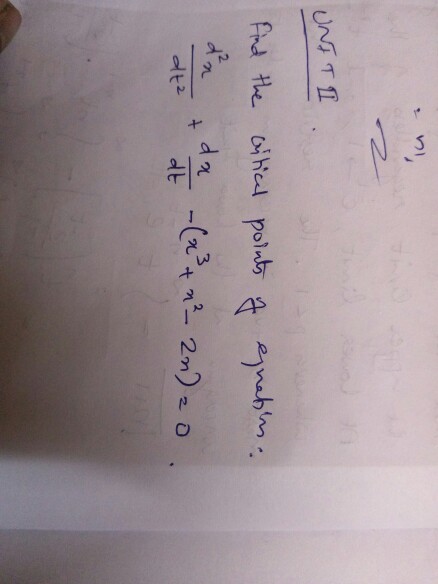 = n!,
UNIT II.
Find the critical points of equation:
d²x/dt² + dx/dt - (x³ + x² - 2x) = 0.